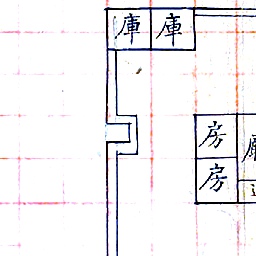 庫 庫
房
房